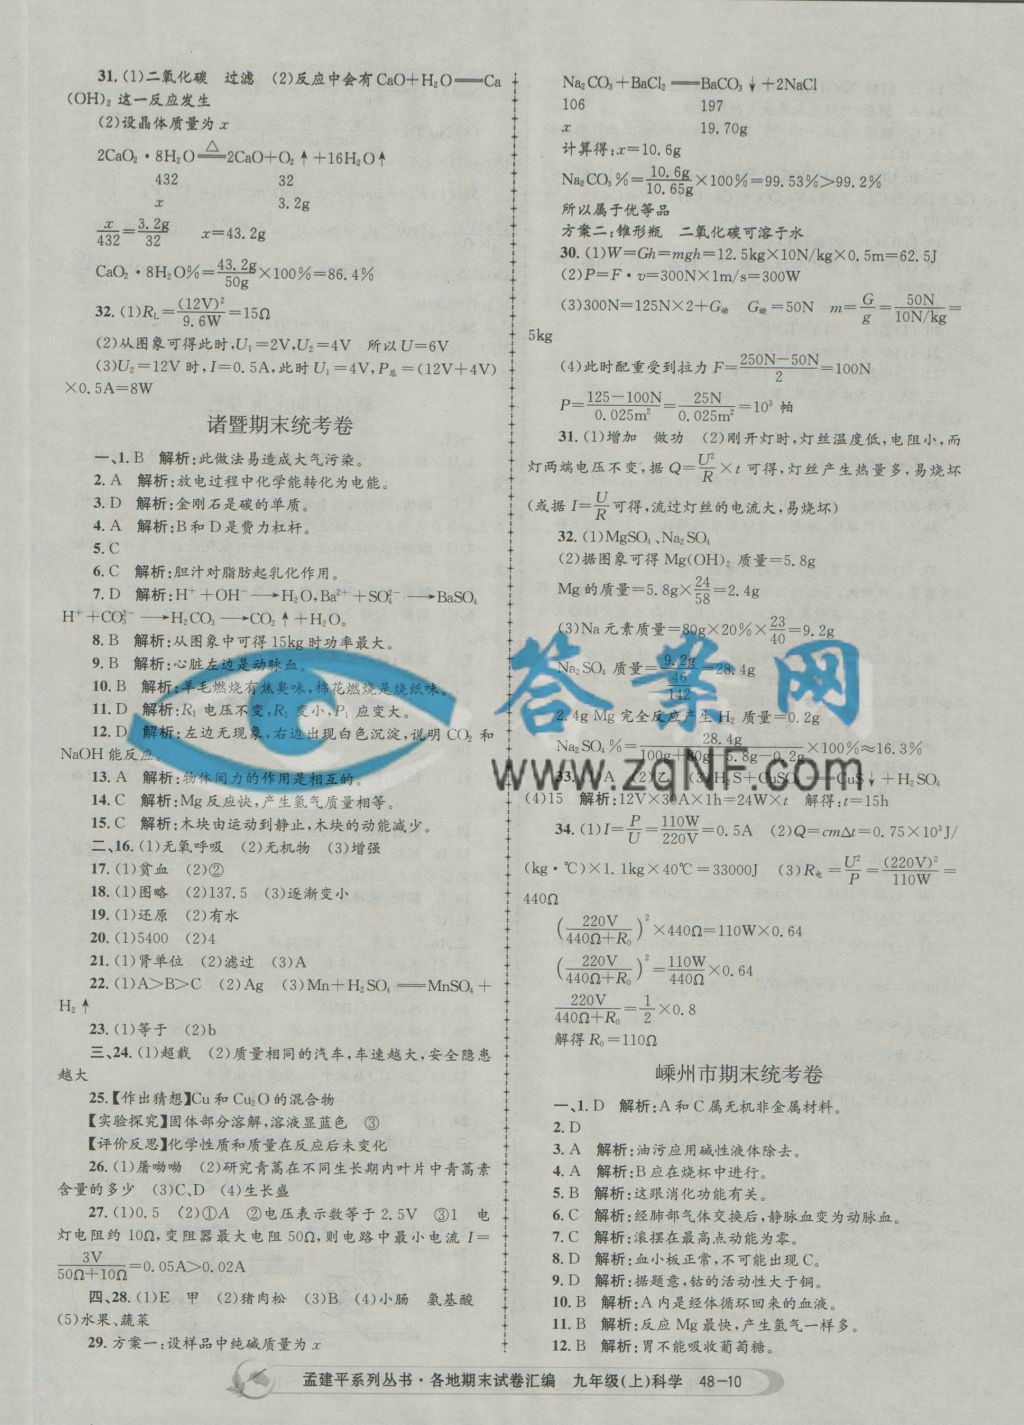 31.(1)二氧化碳　过滤　(2)反应中会有CaO+H₂O══Ca
(OH)₂ 这一反应发生
(2)设晶体质量为 x
2CaO₂·8H₂O══△2CaO+O₂↑+16H₂O↑
432　　32
x　　3.2g
x/432=3.2g/32　x=43.2g
CaO₂·8H₂O%=43.2g/50g×100%=86.4%
32.(1)R_L=(12V)²/9.6W=15Ω
(2)从图象可得此时,U₁=2V,U₂=4V　所以U=6V
(3)U₂=12V 时,I=0.5A,此时U₁=4V,P总=(12V+4V)
×0.5A=8W
诸暨期末统考卷
一、1. B　解析:此做法易造成大气污染。
2. A　解析:放电过程中化学能转化为电能。
3. D　解析:金刚石是碳的单质。
4. A　解析:B和D是费力杠杆。
5. C
6. C　解析:胆汁对脂肪起乳化作用。
7. D　解析:H⁺+OH⁻→H₂O,Ba²⁺+SO₄²⁻→BaSO₄
H⁺+CO₃²⁻→H₂CO₃→CO₂↑+H₂O。
8. B　解析:从图象中可得15kg时功率最大。
9. B　解析:心脏左边是动脉血。
10. B　解析:羊毛燃烧有焦臭味,棉花燃烧是烧纸味。
11. D　解析:R₁ 电压不变,R₁ 变小,P₁ 应变大。
12. D　解析:左边无现象,右边出现白色沉淀,说明CO₂ 和
NaOH能反应。
13. A　解析:物体间力的作用是相互的。
14. C　解析:Mg反应快,产生氢气质量相等。
15. C　解析:木块由运动到静止,木块的动能减少。
二、16.(1)无氧呼吸　(2)无机物　(3)增强
17.(1)贫血　(2)②
18.(1)图略　(2)137.5　(3)逐渐变小
19.(1)还原　(2)有水
20.(1)5400　(2)4
21.(1)肾单位　(2)滤过　(3)A
22.(1)A>B>C　(2)Ag　(3)Mn+H₂SO₄══MnSO₄+
H₂↑
23.(1)等于　(2)b
三、24.(1)超载　(2)质量相同的汽车,车速越大,安全隐患
越大
25.【作出猜想】Cu和Cu₂O的混合物
【实验探究】固体部分溶解,溶液显蓝色　③
【评价反思】化学性质和质量在反应后未变化
26.(1)屠呦呦　(2)研究青蒿在不同生长期内叶片中青蒿素
含量的多少　(3)C、D　(4)生长盛
27.(1)0.5　(2)①A　②电压表示数等于2.5V　③1　电
灯电阻约10Ω,变阻器最大电阻50Ω,则电路中最小电流 I=
3V/(50Ω+10Ω)=0.05A>0.02A
四、28.(1)E　甲　(2)猪肉松　(3)B　(4)小肠　氨基酸
(5)水果、蔬菜
29.方案一:设样品中纯碱质量为 x
Na₂CO₃+BaCl₂══BaCO₃↓+2NaCl
106　　197
x　　19.70g
计算得:x=10.6g
Na₂CO₃%=10.6g/10.65g×100%=99.53%>99.2%
所以属于优等品
方案二:锥形瓶　二氧化碳可溶于水
30.(1)W=Gh=mgh=12.5kg×10N/kg×0.5m=62.5J
(2)P=F·v=300N×1m/s=300W
(3)300N=125N×2+G动　G动=50N　m=G/g=50N/10N/kg=
5kg
(4)此时配重受到拉力 F=(250N-50N)/2=100N
P=(125-100N)/0.025m²=25N/0.025m²=10³ 帕
31.(1)增加　做功　(2)刚开灯时,灯丝温度低,电阻小,而
灯两端电压不变,据 Q=U²/R×t 可得,灯丝产生热量多,易烧坏
(或据 I=U/R可得,流过灯丝的电流大,易烧坏)
32.(1)MgSO₄、Na₂SO₄
(2)据图象可得Mg(OH)₂ 质量=5.8g
Mg的质量=5.8g×24/58=2.4g
(3)Na元素质量=80g×20%×23/40=9.2g
Na₂SO₄ 质量=9.2g/(46/142)=28.4g
2.4g Mg完全反应产生H₂ 质量=0.2g
Na₂SO₄%=28.4g/(100g+80g-5.8g-0.2g)×100%≈16.3%
33.(1)A　(2)乙　(3)H₂S+CuSO₄══CuS↓+H₂SO₄
(4)15　解析:12V×30A×1h=24W×t　解得:t=15h
34.(1)I=P/U=110W/220V=0.5A　(2)Q=cmΔt=0.75×10³J/
(kg·℃)×1.1kg×40℃=33000J　(3)R电=U²/P=(220V)²/110W=
440Ω
(220V/(440Ω+R₀))²×440Ω=110W×0.64
(220V/(440Ω+R₀))²=110W/440Ω×0.64
220V/(440Ω+R₀)=1/2×0.8
解得 R₀=110Ω
嵊州市期末统考卷
一、1. D　解析:A和C属无机非金属材料。
2. D
3. A　解析:油污应用碱性液体除去。
4. A　解析:B应在烧杯中进行。
5. B　解析:这跟消化功能有关。
6. C　解析:经肺部气体交换后,静脉血变为动脉血。
7. C　解析:滚摆在最高点动能为零。
8. D　解析:血小板正常,不可能出现C。
9. D　解析:据题意,钴的活动性大于铜。
10. B　解析:A内是经体循环回来的血液。
11. B　解析:反应Mg最快,产生氢气一样多。
12. B　解析:胃不能吸收葡萄糖。
答案网
www.zqNF.com
孟建平系列丛书·各地期末试卷汇编　九年级(上)科学　48-10